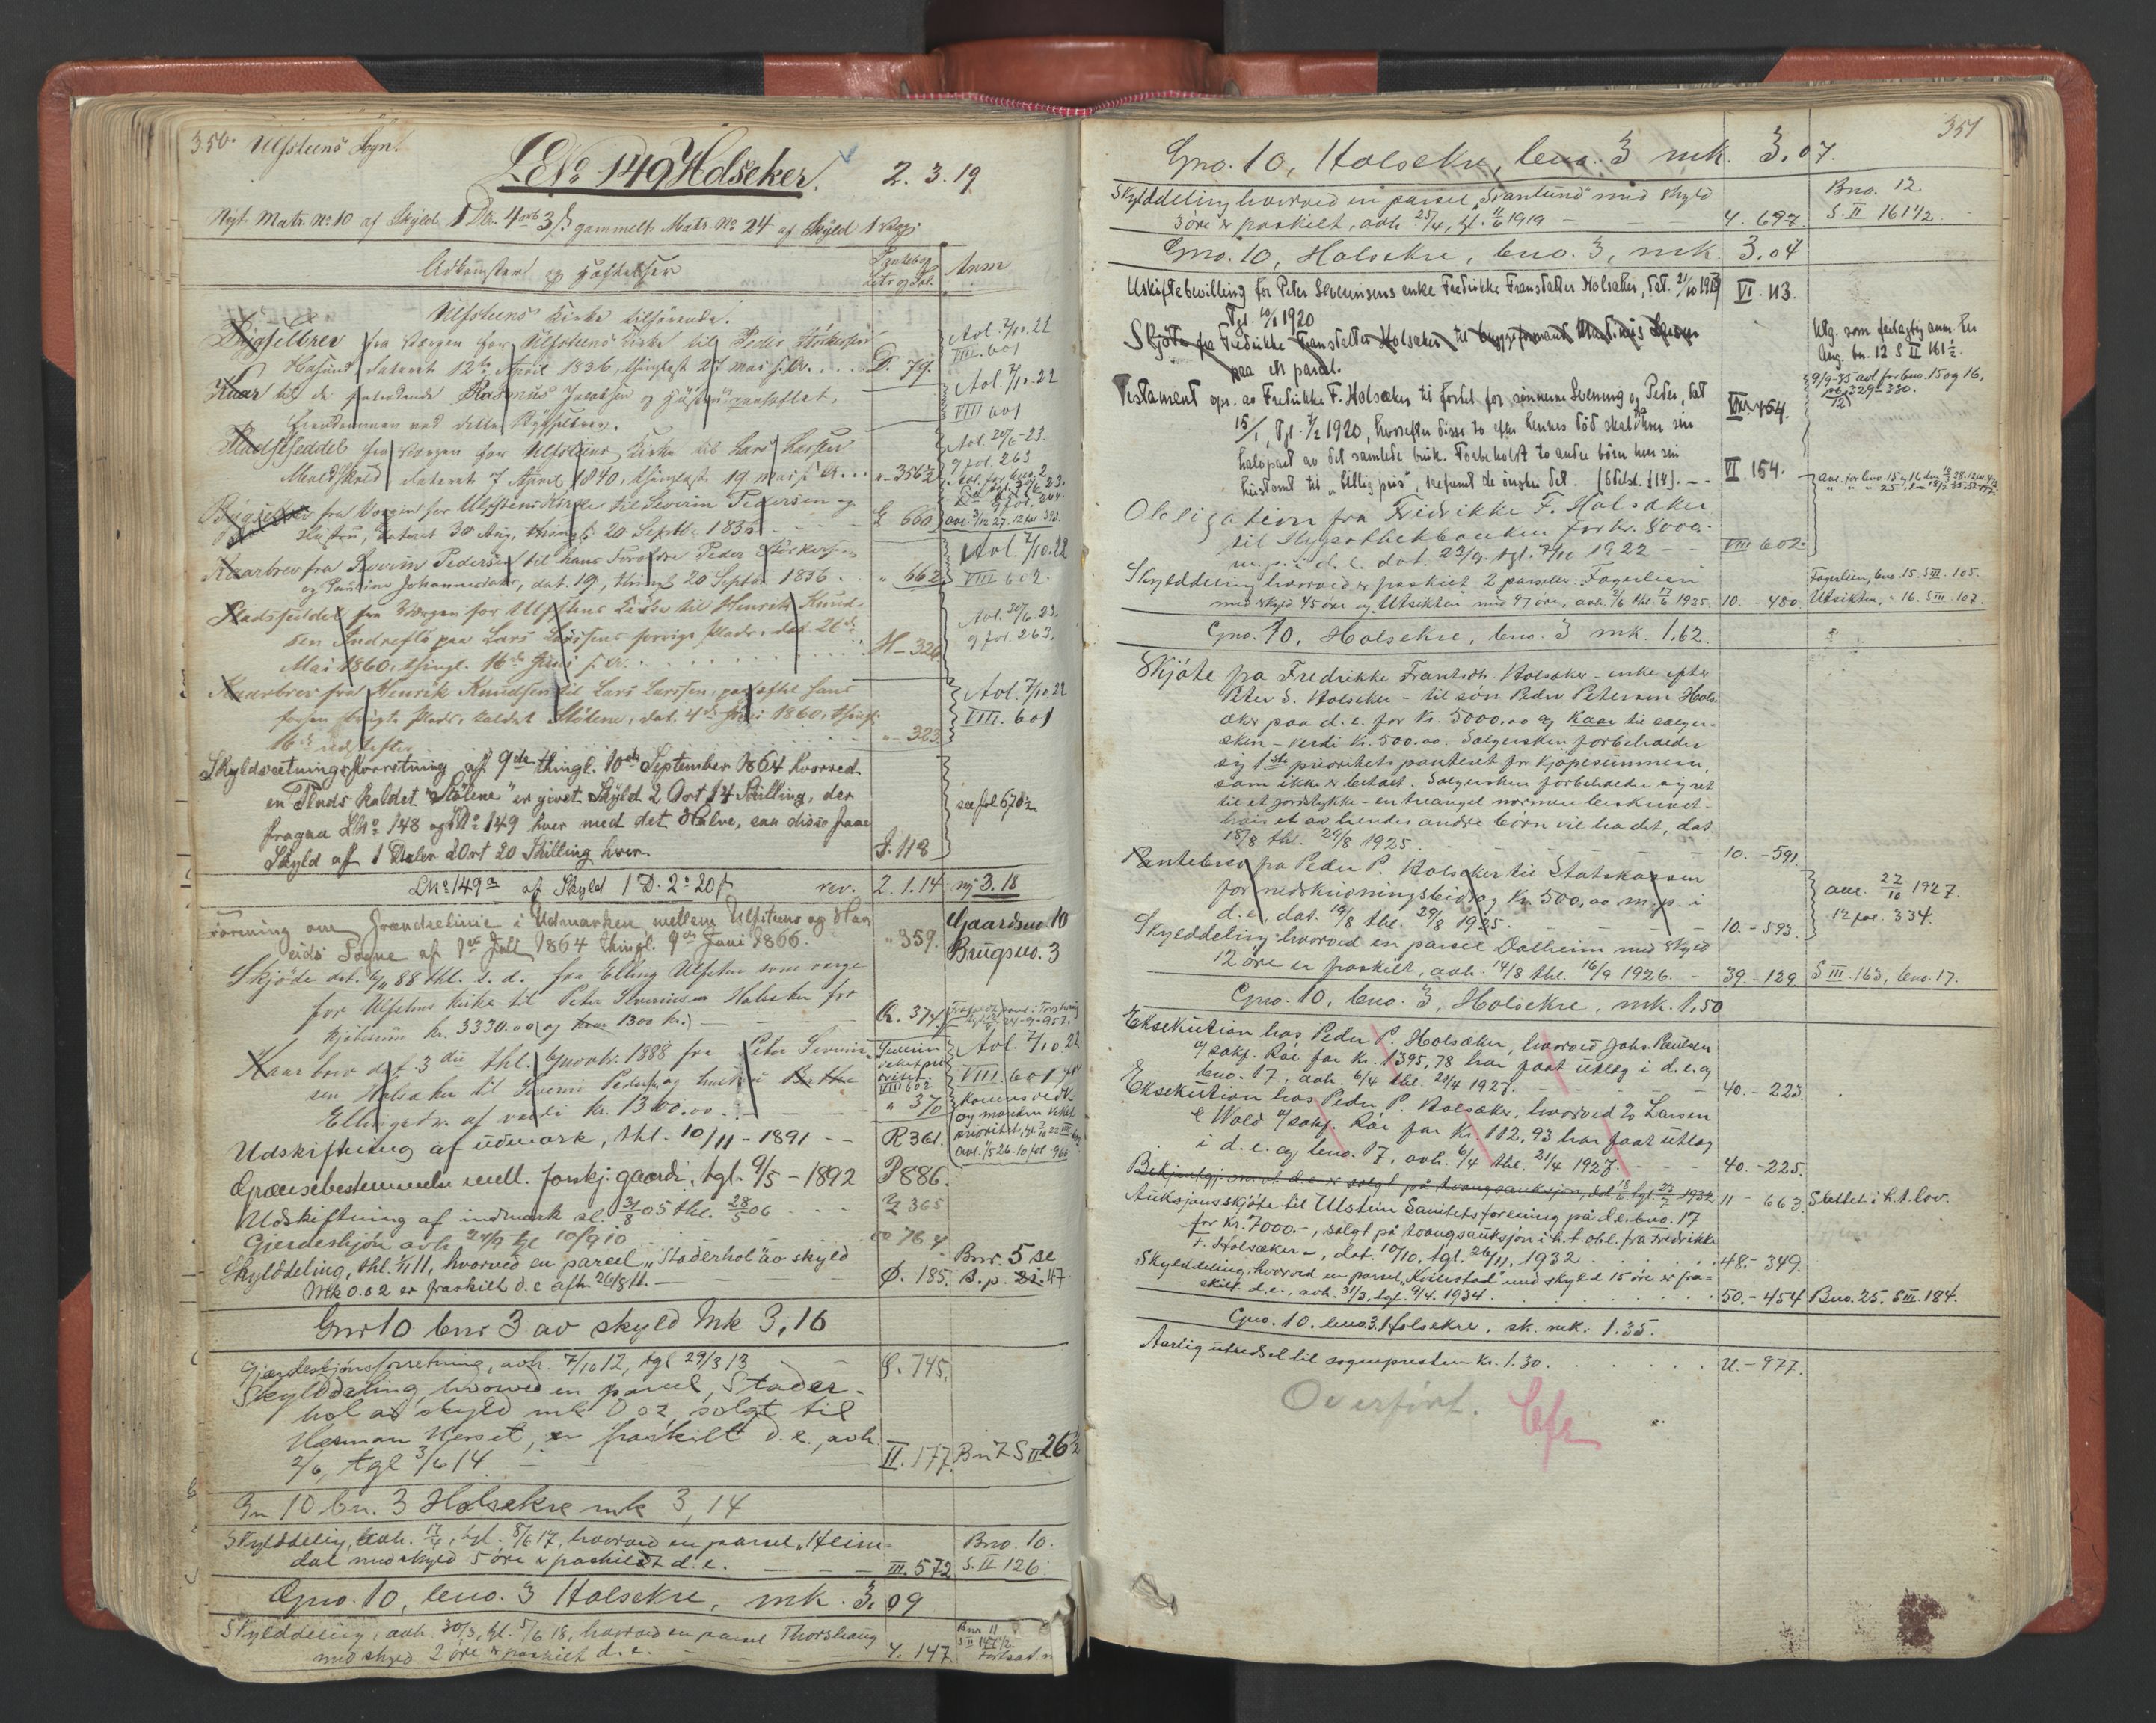 350. Ulfsteens Sogn.
LNo 149 Holseker. 2. 3. 19.
Nyt Matr. No 10 af Skyld 1 Dlr. 4 ort 3 ß gammelt Matr. No 24 af Skyld 1 Vog:
Adkomster og Hæftelser
Anm
Ulfsteens Kirke tilhörende.
Bygselbrev fra Værgen for Ulfsteens Kirke til Peder
Hasund dateret 12te April 1836, thinglæst 27 mai s. A. . . . D. 79.
Avl. 7/10.22
VIII. 601
Kaar til de fratrædende Rasmus Jacobsen og Hustru
Avl. 7/10.22
VIII 601
Pladsseddel fra Værgen for Ulfsteens Kirke til Lars Larssen
dateret 7 April 1840, thinglæst 19 mai s. A. . . . - 356½
Avl. 20/6-23.
9 fol. 263
Bygselbrev fra Værgen for Ulfsteens Kirke til Severin Pedersen og
Hustru, dateret 30 Aug, thingl. 20 Septbr 1836 - - - 660
Kaarbrev fra Severin Pedersen til hans Forældre Peder Störkersen
og Pauline Johannesdatr, dat. 19, thingl. 20 Septbr. 1836. " 662
Avl. 7/10.22
VIII 602.
Pladsseddel fra Værgen for Ulfsteens Kirke til Henrik Knud-
sen Andreflö paa Lars Larssens forrige Plads, dat 26de
Mai 1860, thingl. 16de Juni s. A. . . . H - 326
Avl. 20/6. 23.
9 fol. 263.
Kaarbrev fra Henrik Knudsen til Lars Larssen, paahæftet hans
forhen brugte Plads, kaldet Stölene, dat. 4de Juni 1860, thingl.
16de " - 323
Avl. 7/10.22
VIII. 601
Skyldsætningsforretning af 9de thingl. 10de September 1864 hvorved
en Plads kaldet "Stölene" er givet Skyld 2 Ort 14 Skilling, der
fragaa LNo 148 og No 149 hver med det Halve, saa disse faae
Skyld af 1 Daler 2 Ort 20 Skilling hver. J. 118
see fol 678½
LNo 149a af Skyld 1 D. 2 " 20 ß rev. 2. 1. 14 ny 3. 18
Forening om Grændselinie i Udmarken mellem Ulfsteens og Har-
eids Sogne af 1ste Juli 1864 thingl. 9de Juni 1866. " 359.
Gaardsno 10
Brugsno. 3
Skjöde dat. 6/11 88 thl. s. d. fra Elling Ulfsten som værge
for Ulfstens kirke til Peter Severinsen Holseker for
kjöbesum kr. 3330.00 (og kaar 1300 kr.) - - - Q. 374.
Kaarbrev dat. 3die thl. 6 novbr. 1888 fra Peter Severin-
sen Holseker til Severin Pedersen og hustru Berthe
Ellingsdtr. af værdi kr. 1300.00. - - - " 370
Avl. 7/10.22
VIII. 601
Udskiftning af udmark, thl. 10/11 - 1891 - - R 361.
Grænsebestemmelse mell. forskj. gaarde, tgl. 9/5 - 1892 P 886.
Udskiftning af indmark sl. 31/8 05 thl. 28/5 06 - - - 365
Gjerdeskjön avh. 24/9 tgl 10/9 10 764
Skylddeling, thl. 1/11 11, hvorved en parcel "Staderhol" av skyld
Mk 0.02 er fraskilt d. e. afh. 26/8 11. Ø. 185.
Bnr. 5 se
Gnr 10 bnr 3 av skyld Mk 3,16
Gjærdeskjönsforretning, avh. 7/10 12, tgl 29/3 13 - - 745.
Skylddeling hvorved en parcel, Stader-
hol av skyld mk 0 02 solgt til
Herman Hesset, er fraskilt d. e., avh.
2/6, tgl 3/6 14. - - - II. 177.
Bn 7 S II 26½
Gn 10 bn. 3 Holsekre mk 3,14
Skylddeling, avh. 17/4, tgl. 8/6 17, hvorved en parsel "Heim-
dal" med skyld 5 öre er fraskilt d. e. - - - III. 572
Bno. 10.
S. II 126.
Gno. 10, bno. 3 Holsekre, mk. 3,09
Skylddeling, avh. 30/3, tgl. 5/6 18, hvorved en parsel Thorshaug
med skyld 2 öre er fraskilt d. e. - - 4. 147.
Bnr 11
351
Gno. 10, Holsekre, bno. 3 mk. 3.07.
Skylddeling hvorved en parsel "Svanlund" med skyld
3 öre er fraskilt, avh. 25/4, tgl. 11/6 1919 - - - 4. 697.
Bno. 12
S. II 161½
Gno. 10, Holsekre, bno. 3, mk. 3.04
Uskiftebevilling for Peter Severinsens enke Fredrikke Fransdatter Holsæker, dat. 21/10 1919
tgl. 10/1 1920 VI. 113.
Skjöte fra Fredrikke Fransdatter Holsæker til byggeformand
paa en parsel.
Utg. som feilagtig anm. her
Ang. bn. 12 S II 161½.
Testament opr. av Fredrikke F. Holsæker til fordel for sönnerne Severin og Peder, dat
15/1, tgl. 7/2 1920, hvorefter disse to efter hennes död skal ha hver sin
halvpart av det samlede bruk. Forbeholdt to andre börn hver sin
hustomt til "billig pris", hvis de önsker det. VI. 154.
9/9-35 avl for bno. 15 og 16,
Obligation fra Fredrikke F. Holsæker
til Hypothekbanken for kr. 8000.-
m. p. i d. e. dat. 23/9. tgl. 7/10 1922 - - VIII 602.
Skylddeling hvorved er fraskilt 2 parseller: Fagerlien
med skyld 45 öre og Utsikten med 97 öre, avh. 2/6 thl. 17/6 1925. 10. - 480.
Fagerlien, bno. 15. S III. 105.
Utsikten, " 16. S III. 107.
Gno. 10, Holsekre, bno. 3 mk. 1.62.
Skjöte fra Fredrikke Frantsdtr. Holsæker - enke efter
Peter S. Holseker - til sön Peder Petersen Hols-
æker paa d. e. for kr. 5000,00 og Kaar til sælger-
sken - verdi kr. 500.00. Sælgersken forbeholder
sig 1ste prioritets panteret for kjöpesummen,
som ikke er betalt. Sælgersken forbeholder sig ret
til et jordstykke - en treangel nærmere beskrevet -
hvis et av hendes andre börn vil ha det, dat.
18/8 thl. 29/8 1925. 10. - 591.
Pantebrev fra Peder P. Holsæker til Statskassen
for nedskrivningsbidrag kr. 500,00 m. p. i
d. e., dat. 19/8 thl. 29/8 1925. 10. - 593.
avl. 22/10 1927.
12 fol. 334.
Skylddeling hvorved en parsel Dalheim med skyld
12 öre er fraskilt, avh. 14/8 thl. 16/9 1926. - 39. - 129
S III. 163, bno. 17.
Gno. 10, bno. 3, Holsekre, mk. 1,50
Eksekution hos Peder P. Holsæker, hvorved Johs. Paulsen
v/ sakf. Röe for kr. 1395,78 har faat utlæg i d. e. og
bno. 17, avh. 6/4 thl. 21/4 1927. - - - 40. - 223.
Eksekution hos Peder P. Holsæker, hvorved Larsen
& Wold v/ sakf. Röe for kr. 112,93 har faat utlæg
i d. e. og bno. 17, avh. 6/4 thl. 21/4 1927. - - - 40. - 225.
Bekjentgj. om at d. e. er solgt på tvangsauksjon, dat. 18/6 tgl. 23/7 1932 11 - 663.
Slettet i h. t. lov.
Auksjonsskjöte til Ulstein Sanitetsforening på d. e. bno. 17
for kr. 7000.-, solgt på tvangsauksjon i h. t. obl. fra Fredrikke
F. Holsæker -, dat. 10/10, tgl. 26/11, 1932 . . . 48. - 349.
Skylddeling, hvorved en parsel "Kvilestad" med skyld 15 öre er fra-
skilt d. e., avh. 31/3, tgl. 9/4. 1934. . . . 50. - 454
Bno. 25. S III. 184.
Gno. 10. bno. 3. Holsekre, sk. mk. 1.35.
Aarlig utredsel til sognepresten kr. 1.30. . . . U. - 977.
Overfört.